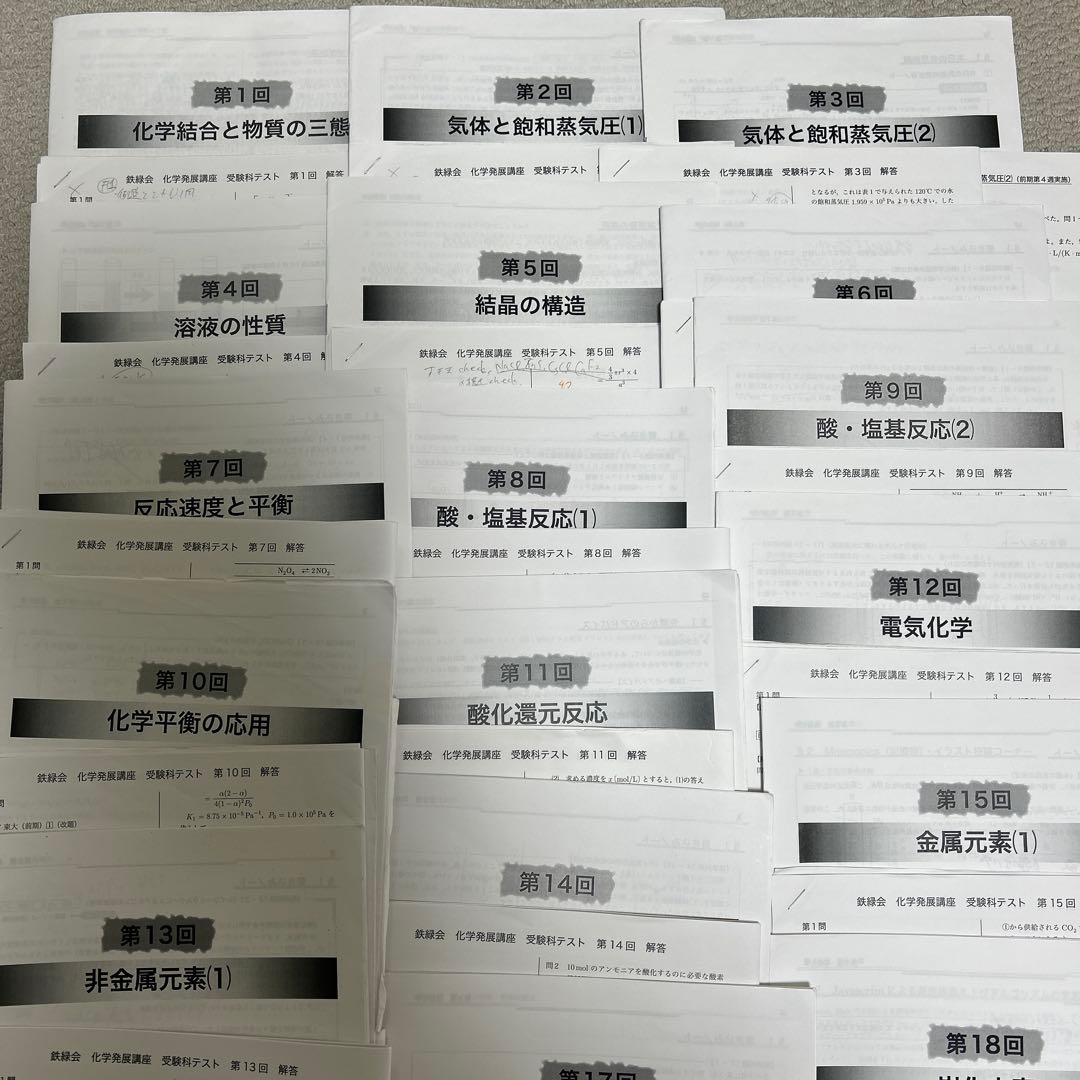 第1回
化学結合と物質の三態
鉄緑会 化学発展講座 受験科テスト 第1回 解答
第1問
第2回
気体と飽和蒸気圧(1)
鉄緑会 化学発展講座 受験科テスト
第3回
気体と飽和蒸気圧(2)
鉄緑会 化学発展講座 受験科テスト 第3回 解答
となるが,これは表1で与えられた120℃での水
の飽和蒸気圧 1.959×10⁵Paよりも大きい.した
蒸気圧(2)(前期第4週実施)
第4回
溶液の性質
鉄緑会 化学発展講座 受験科テスト 第4回
第5回
結晶の構造
鉄緑会 化学発展講座 受験科テスト 第5回 解答
第6回
第7回
反応速度と平衡
鉄緑会 化学発展講座 受験科テスト 第7回 解答
第1問
N₂O₄ ⇌ 2NO₂
第8回
酸・塩基反応(1)
鉄緑会 化学発展講座 受験科テスト 第8回 解答
第9回
酸・塩基反応(2)
鉄緑会 化学発展講座 受験科テスト 第9回 解答
第10回
化学平衡の応用
鉄緑会 化学発展講座 受験科テスト 第10回 解答
= α(2−α) / 4(1−α)²P₀
K₁ = 8.75×10⁻⁵Pa⁻¹, P₀ = 1.0×10⁵Pa を
東大(前期)1(改題)
第11回
酸化還元反応
鉄緑会 化学発展講座 受験科テスト 第11回 解答
(2) 求める濃度をx[mol/L]とすると,(1)の答え
第12回
電気化学
鉄緑会 化学発展講座 受験科テスト 第12回 解答
第1問
第13回
非金属元素(1)
鉄緑会 化学発展講座 受験科テスト 第13回 解答
第14回
鉄緑会 化学発展講座 受験科テスト 第14回 解答
問2 10molのアンモニアを酸化するのに必要な酸素
第15回
金属元素(1)
鉄緑会 化学発展講座 受験科テスト 第15回
第1問
①から供給されるCO₂
第17回
第18回